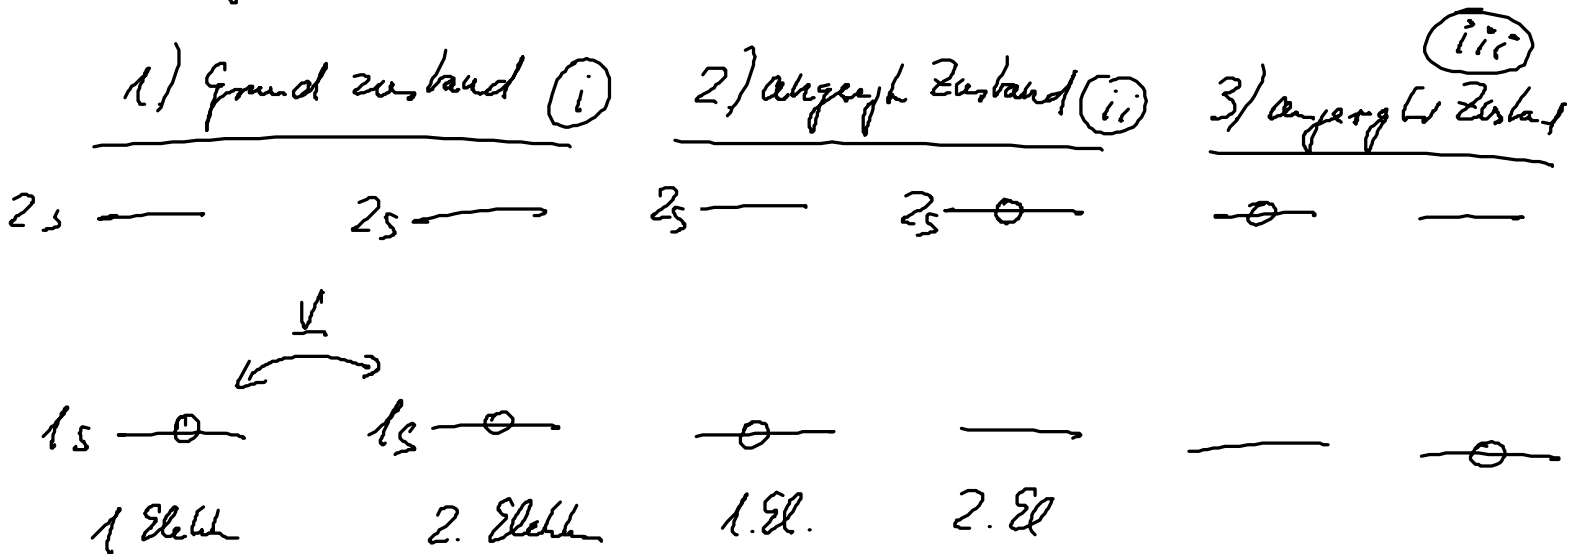 1) Grundzustand i 2) angeregt Zustand ii 3) angeregter Zustand iii
2s 2s 2s 2s
V
1s 1s
1 Elektron 2. Elektron 1. El. 2. El